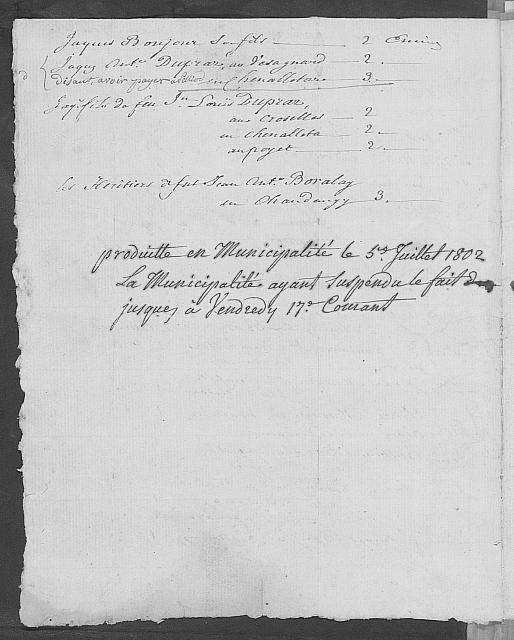 Jaques Bonjour Son fils — 2
Jaques Ant.ne Dupraz, au Vesagnard — 2
disant, avoir payer en Chenalletaz — 3
Jaq.s fils de feu J.n Louis Dupraz,
aux Croselles — 2
en Chenalleta — 2
au poyet — 2
Les Heritiers de fut Jean Ant.ne Boralay
en Chaudangy 3
produitte en Municipalité le 5.e Juillet 1802
La Municipalité ayant Suspendu le fait
jusques à Vendredy 17.e Courant